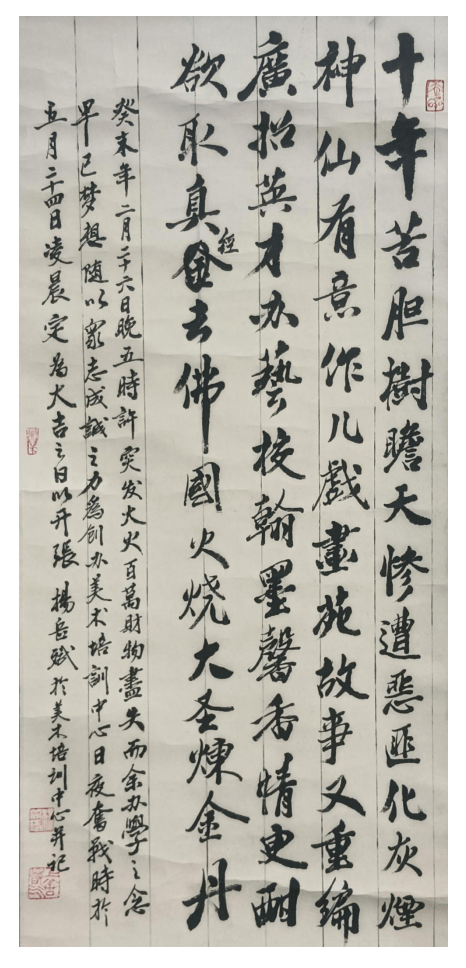 十年苦胆樹瞻天惨遭悲匪化灰煙
神仙有意作儿戲畫苑故事又重編
廣招英才办藝校翰墨馨香情更酣
欲取真金經去佛國火烧大圣煉金丹
癸未年二月二十六日晚五時許突发大火百萬財物盡失而余办學之念
早已梦想随以衆志成誠之力為创办美术培訓中心日夜奮戰時於
五月二十四日凌晨定為大吉之日以开張楊岳斌於美术培訓中心并记